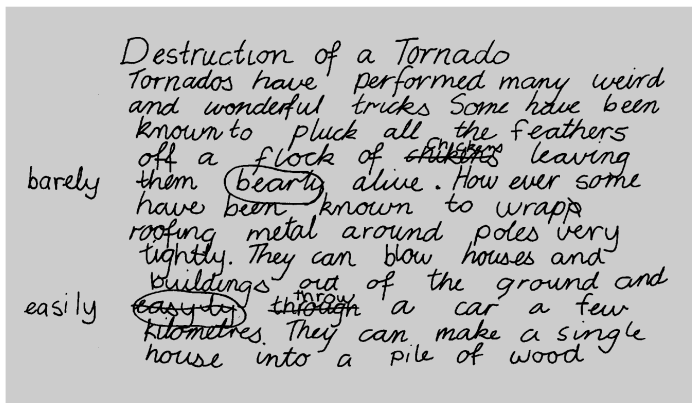 Destruction of a Tornado
Tornados have performed many weird
and wonderful tricks Some have been
known to pluck all the feathers
chickens
off a flock of shikins leaving
barely them bearly alive. How ever some
have been known to wrapp
roofing metal around poles very
tightly. They can blow houses and
buildings out of the ground and
throw
easily easyly through a car a few
kilometres. They can make a single
house into a pile of wood